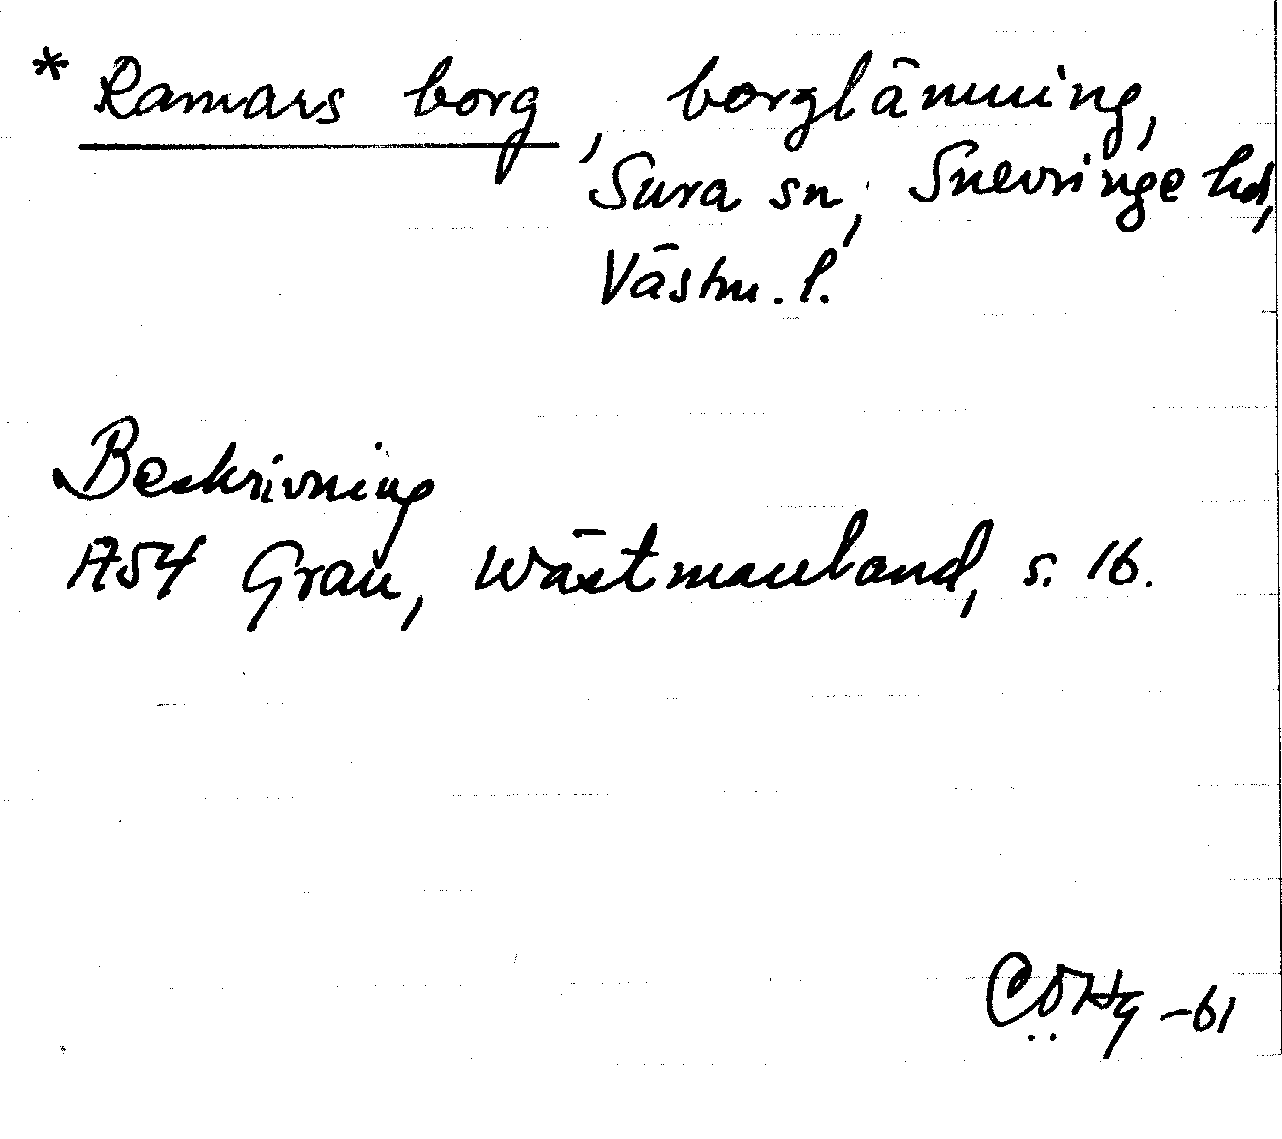 * Ramars borg, borglämning,
Sura sn, Snevringe hd,
Västm. l.
Beskrivning
1754 Grau, Wästmanland, s. 16.
CÖHg -61